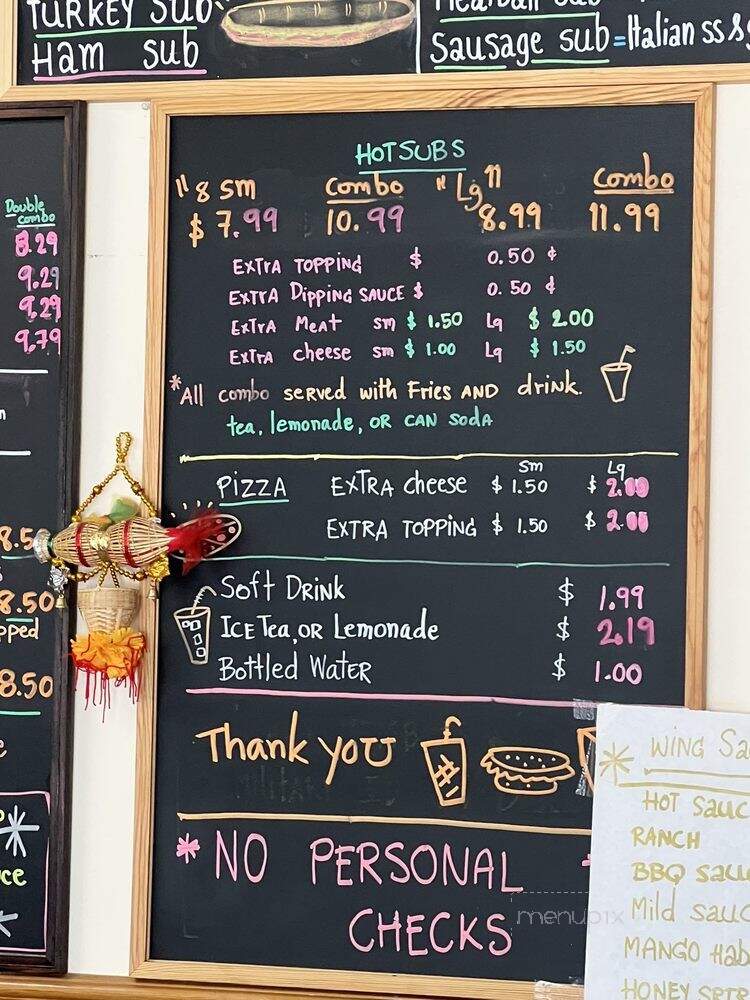 TURKEY SUB
HAM SUB
Sausage SUB = Italian
Double
combo
9.29
9.29
9.79
8.50
8.50
HOT SUBS
"8 sm Combo "Lg" Combo
$ 7.99 10.99 8.99 11.99
EXTRA TOPPING $ 0.50 ¢
EXTRA Dipping SAUCE $ 0.50 ¢
EXTRA Meat sm $ 1.50 Lg $ 2.00
EXTRA cheese sm $ 1.00 Lg $ 1.50
*All combo served with Fries AND drink.
tea, lemonade, OR CAN SODA
sm Lg
PIZZA EXTRA cheese $ 1.50 $ 2.00
EXTRA TOPPING $ 1.50 $ 2.00
Soft DRINK $ 1.99
ICE Tea, OR Lemonade $ 2.19
Bottled Water $ 1.00
Thank you
*NO PERSONAL *
CHECKS
menupix
* WING
HOT
RANCH
BBQ
Mild
MANGO
HONEY